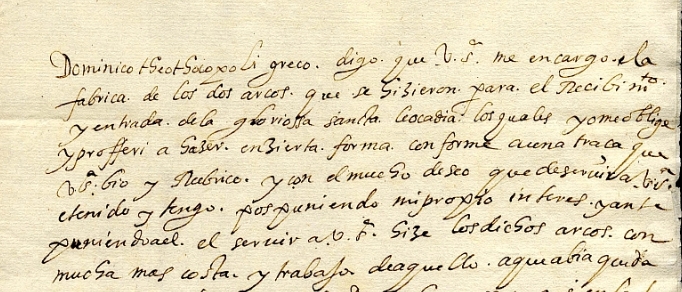 Dominico theotocopoli greco. digo. que V. Sª. me encargo. ela
fabrica. de los dos arcos. que se hizieron. para. el Recibimto.
y entrada. dela gloriossa sancta. leocadia. los quales yo me oblige
y profferi a hazer. en zierta. forma. conforme a una traca que
V. Sª. bio y Rubrico. y con el mucho deseo que de servir a V. Sª.
e tenido y tengo. pospuniendo mi propio interes. y ante
puniendo a el. el servir a V. Sª. hize los dichos arcos. con
mucha mas costa. y trabajo de aquello. a que abia